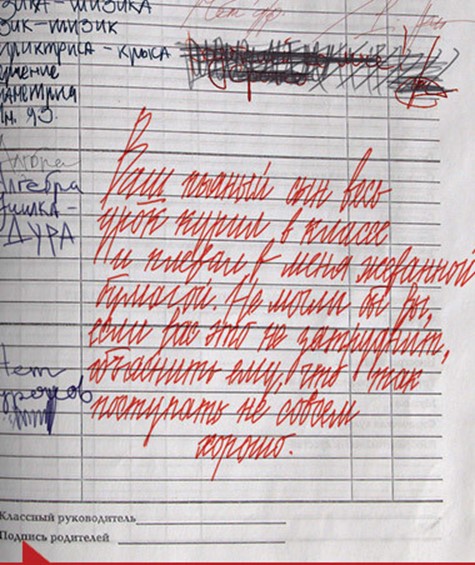 ЗИКА - ШИЗИКА
ЗИК - ШИЗИК
- крыса
метрия
Алгебра
ДУРА
Ваш пьяный сын весь
урок курил в классе
и плевал в меня жеванной
бумагой. Не могли бы вы,
если вас это не затруднит,
объяснить ему, что так
Нет
уроков
поступать не совсем
хорошо.
Классный руководитель
Подпись родителей